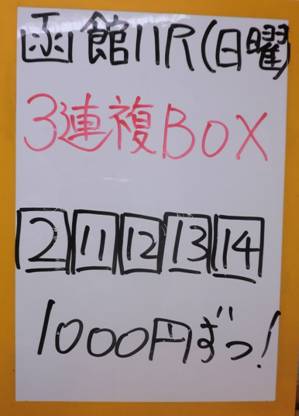 函館11R(日曜)
3連複BOX
2 11 12 13 14
1000円ずつ!